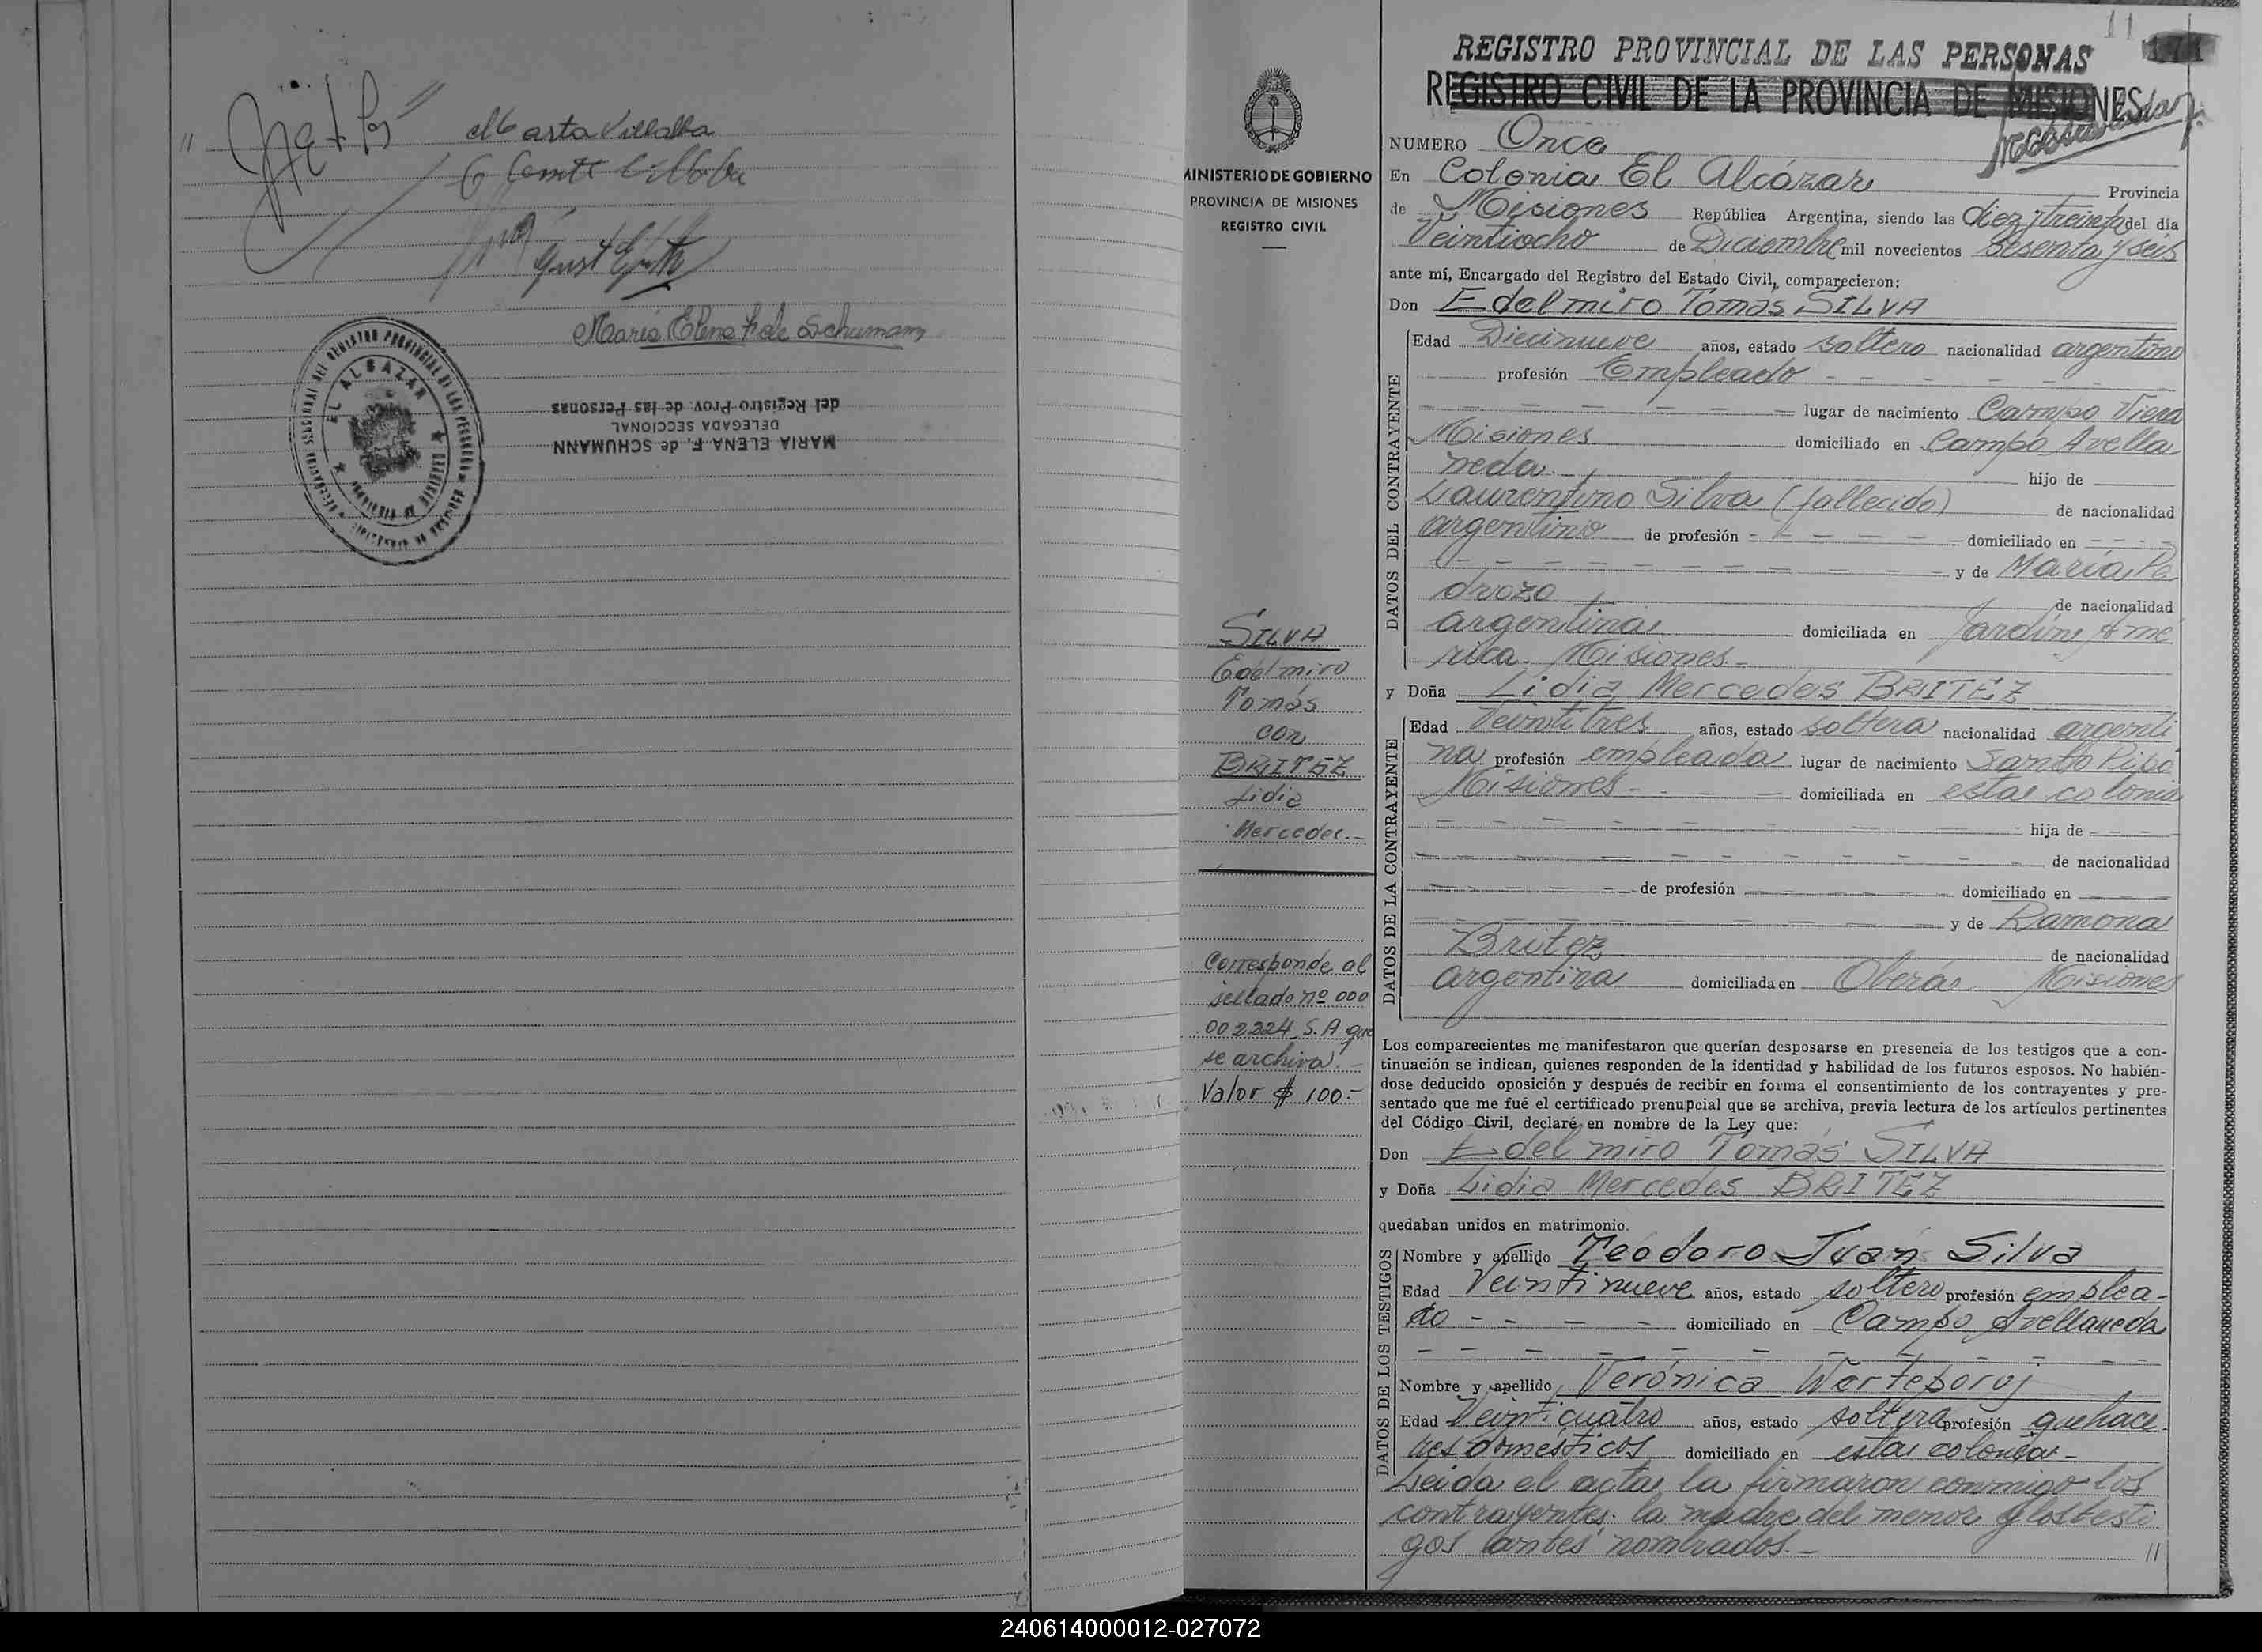 Marta Villalba
Maria Elena F. de Schumann
MARIA ELENA F. de SCHUMANN
DELEGADA SECCIONAL
del Registro Prov. de las Personas
EL ALCAZAR
11
REGISTRO PROVINCIAL DE LAS PERSONAS
REGISTRO CIVIL DE LA PROVINCIA DE MISIONES
MINISTERIO DE GOBIERNO
PROVINCIA DE MISIONES
REGISTRO CIVIL
SILVA
Edelmiro
Tomás
con
BRITEZ
Lidia
Mercedes.-
Corresponde al
sellado nº 000
002224 S.A que
se archiva.-
Valor $ 100.-
NUMERO Once
En Colonia El Alcázar Provincia
de Misiones República Argentina, siendo las diez y treinta del día
Veintiocho de Diciembre mil novecientos sesenta y seis
ante mí, Encargado del Registro del Estado Civil, comparecieron:
Don Edelmiro Tomás SILVA
DATOS DEL CONTRAYENTE
Edad Diecinueve años, estado soltero nacionalidad argentino
profesión Empleado - - - - - -
- - - - - - lugar de nacimiento Campo Viera
Misiones domiciliado en Campo Avella
neda.- hijo de
Laurentino Silva (fallecido) de nacionalidad
argentino de profesión - - - - - domiciliado en - - - -
- - - - - - - - - - y de María Pe
drozo de nacionalidad
argentina domiciliada en Jardín Amé
rica. Misiones.-
y Doña Lidia Mercedes BRITEZ
DATOS DE LA CONTRAYENTE
Edad Veintitres años, estado soltera nacionalidad argenti
na profesión empleada lugar de nacimiento Santo Pipó
Misiones - - - - domiciliada en esta colonia
- - - - - - - - - hija de - - -
- - - - - - - - - de nacionalidad
- - - - - - de profesión - - - - - domiciliado en - - -
- - - - - - - - - y de Ramona
Britez de nacionalidad
argentina domiciliada en Oberá. Misiones
Los comparecientes me manifestaron que querían desposarse en presencia de los testigos que a con-
tinuación se indican, quienes responden de la identidad y habilidad de los futuros esposos. No habién-
dose deducido oposición y después de recibir en forma el consentimiento de los contrayentes y pre-
sentado que me fué el certificado prenupcial que se archiva, previa lectura de los artículos pertinentes
del Código Civil, declaré en nombre de la Ley que:
Don Edelmiro Tomás SILVA
y Doña Lidia Mercedes BRITEZ
quedaban unidos en matrimonio.
DATOS DE LOS TESTIGOS
Nombre y apellido Teodoro Juan Silva
Edad Veintinueve años, estado soltero profesión emplea-
do - - - - - domiciliado en Campo Avellaneda
- - - - - - - - - - -
Nombre y apellido Verónica Werteporoj
Edad Veinticuatro años, estado soltera profesión quehace
res domésticos domiciliado en esta colonia.-
Leida el acta, la firmaron conmigo los
contrayentes. la madre del menor y los testi
gos antes nombrados.- //
240614000012-027072